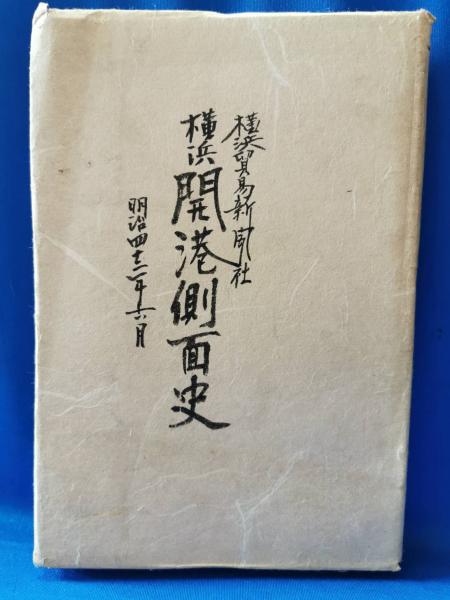 横浜貿易新聞社
横浜開港側面史
明治四十二年六月